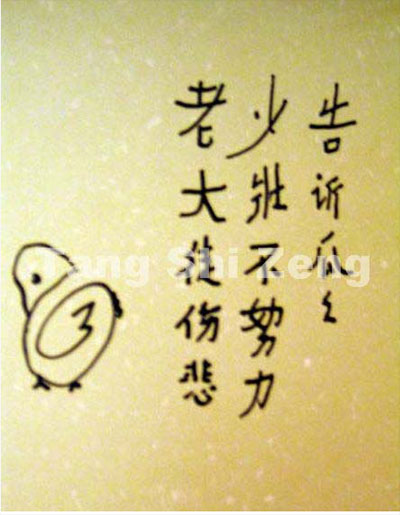 告诉瓜々
少壮不努力
老大徒伤悲
Tang Shi Zeng